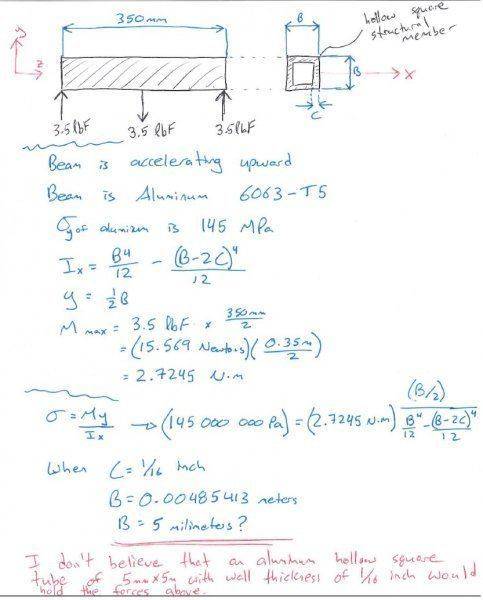 350mm
B
hollow square
structural
member
y
z
B
X
C
3.5 lbF
3.5 lbF
3.5 lbF
Beam is accelerating upward
Beam is Aluminum 6063-T5
σy of aluminum is 145 MPa
Ix = B⁴/12 - (B-2C)⁴/12
y = ½B
M max = 3.5 lbF × 350mm/2
= (15.569 Newtons)(0.35m/2)
= 2.7245 N·m
σ = My/Ix → (145 000 000 Pa) = (2.7245 N·m) (B/2)/(B⁴/12 - (B-2C)⁴/12)
When C = 1/16 inch
B = 0.00485413 meters
B = 5 milimeters?
I don't believe that an aluminum hollow square
tube of 5mm x 5m with wall thickness of 1/16 inch would
hold the forces above.